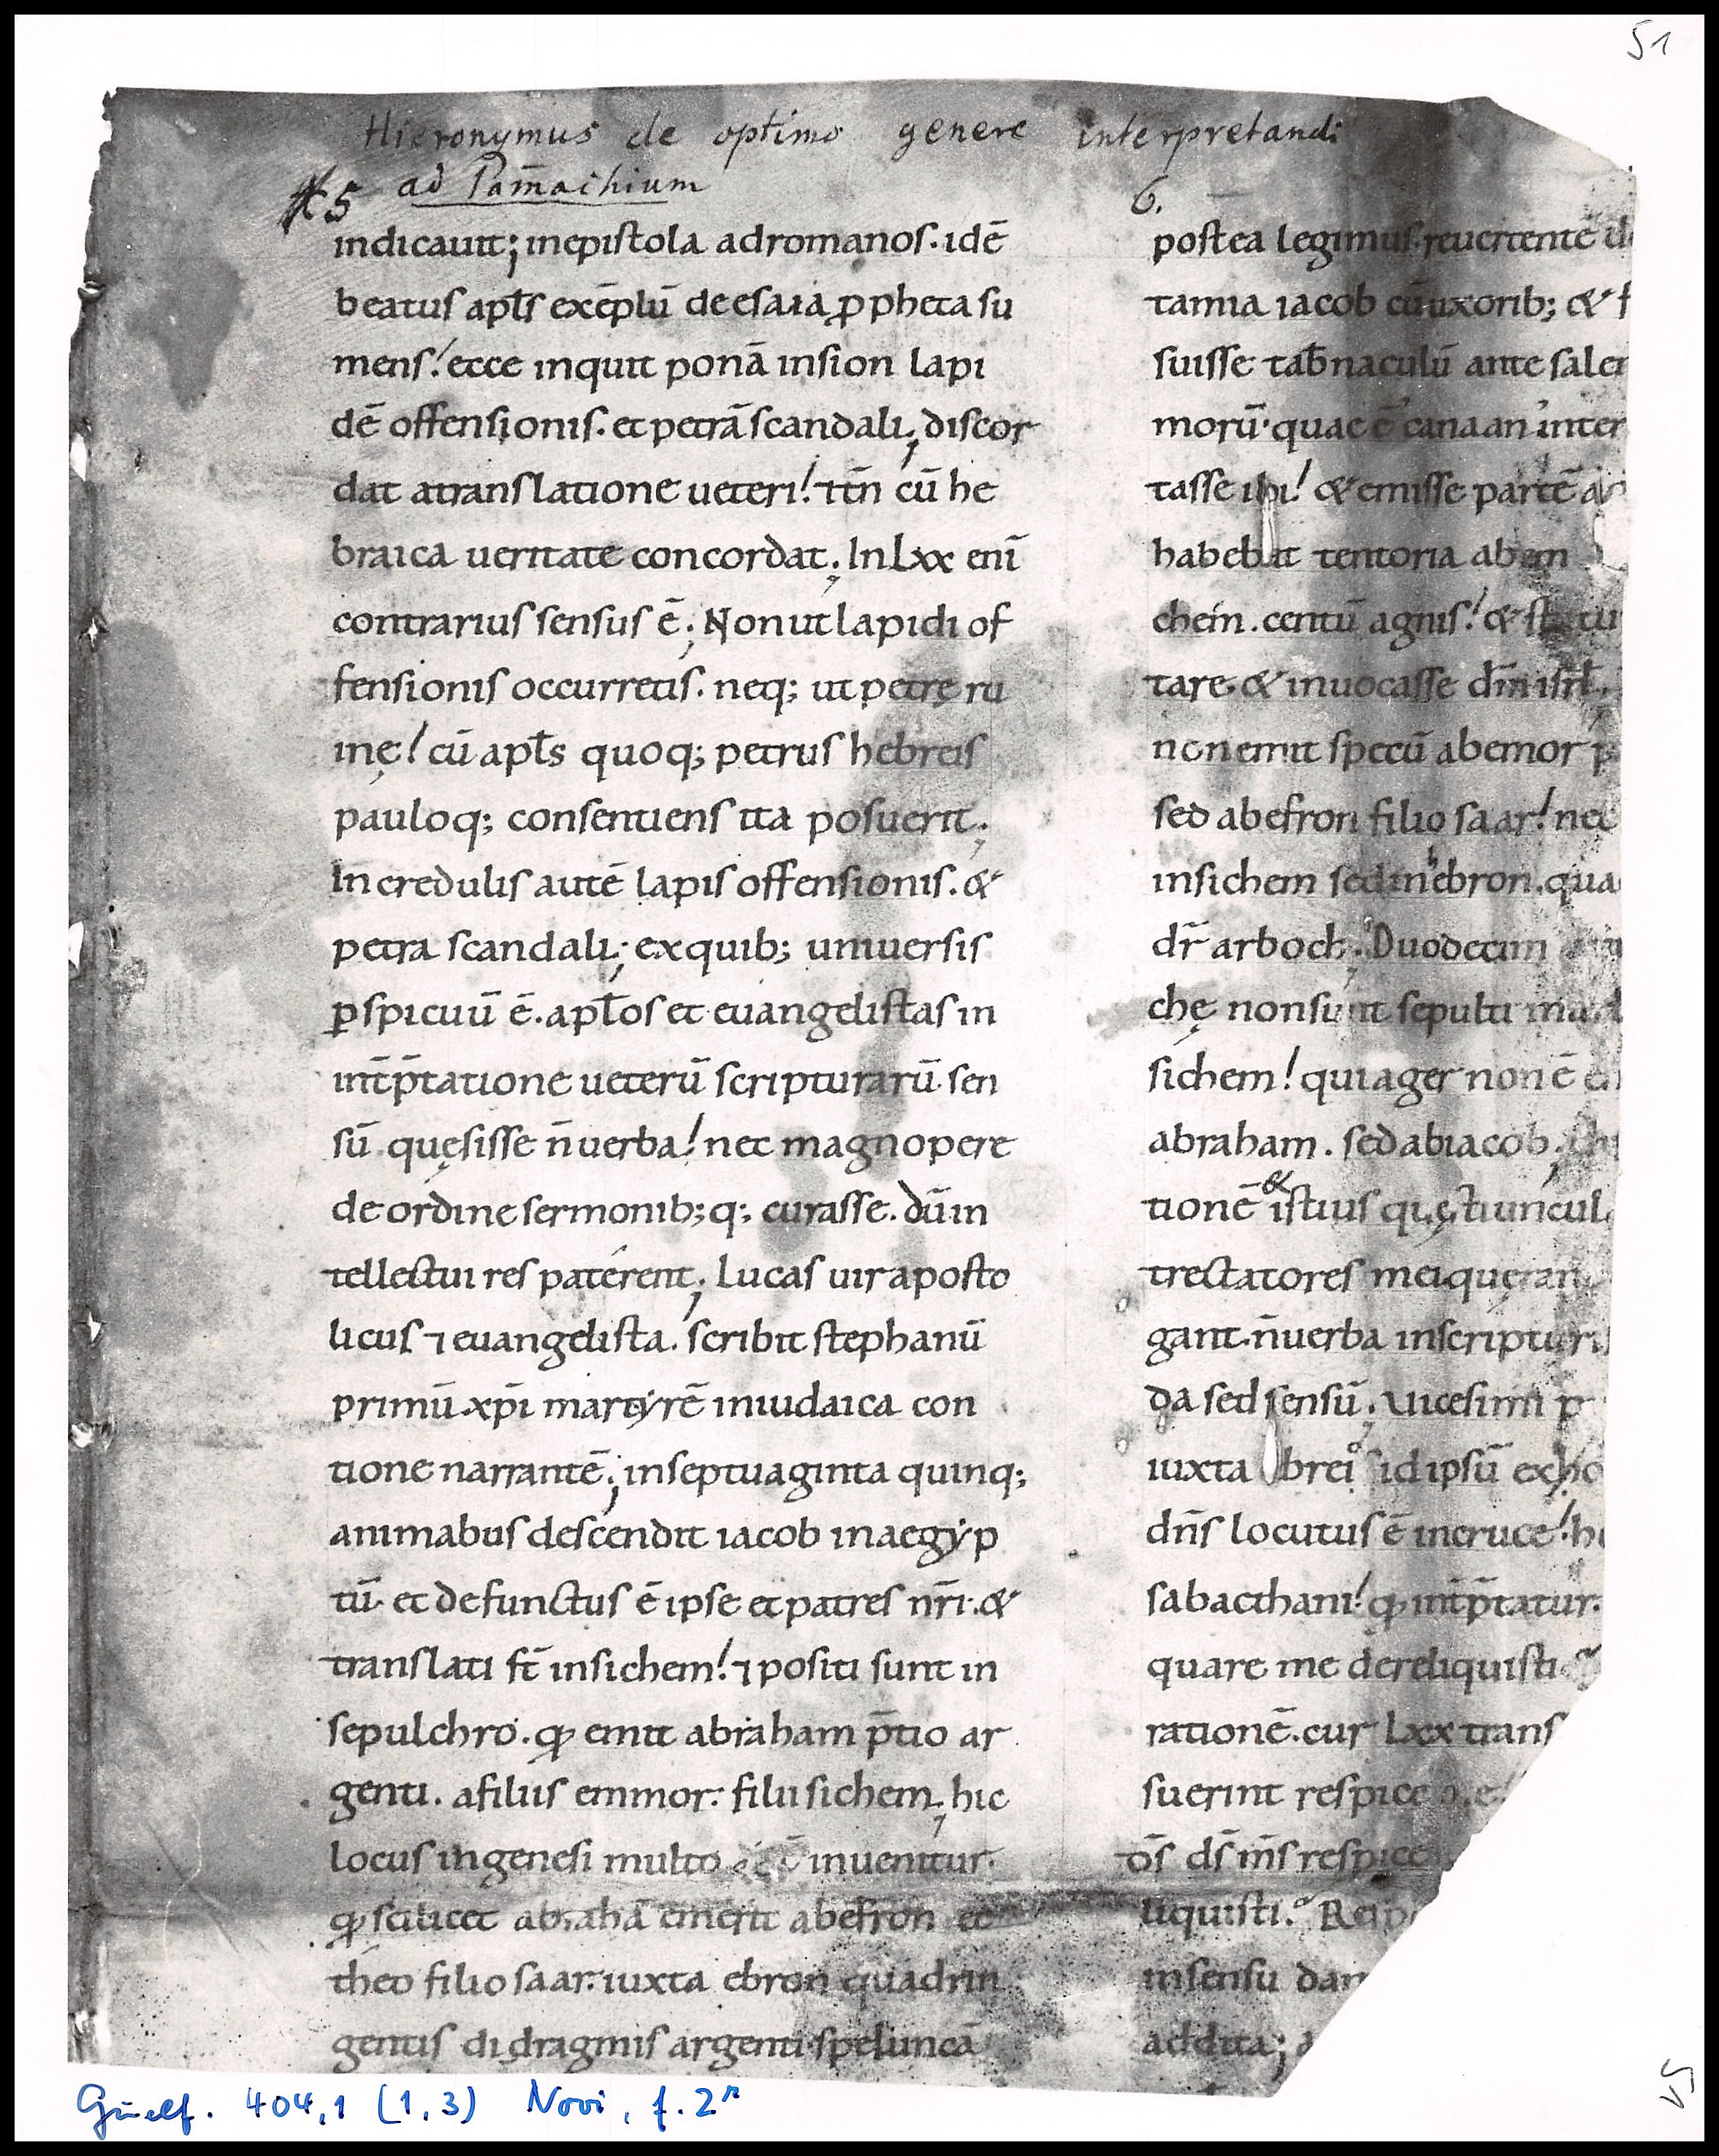 51
Hieronymus de optimo genere interpretandi
ad Pam̄achium
5
indicauit; inepistola adromanos. idē
beatus apl̄s exēplū deesaia ꝓpheta su
mens! ecce inquit ponā insion lapi
dē offensionis. et petrā scandali; discor
dat atranslatione ueteri! ⁊tn̄ cū he
braica ueritate concordat; In Lxx enī
contrarius sensus ē; Non ut lapidi of
fensionis occurretis. neq; ut petrę ru
inę! cū apl̄s quoq; petrus hebreis
pauloq; consentiens ita posuerit;
Incredulis autē lapis offensionis. &
petra scandali; exquib; uniuersis
ꝑspicuū ē. apl̄os et euangelistas in
int̄p̄tatione ueterū scripturarū sen
sū quęsisse n̄ uerba! nec magnopere
deordine sermonib;q; curasse. dū in
tellectui res paterent; Lucas uir aposto
licus ⁊ euangelista. scribit stephanū
primū xp̄i martyrē iniudaica con
tione narrantē; inseptuaginta quinq;
animabus descendit iacob inaegyp
tū et defunctus ē ipse et patres nr̄i. &
translati st̄ insichem! ⁊ positi sunt in
sepulchro. ꝙ emit abraham p̄tio ar
genti. afiliis emmor. filii sichem; hic
locus ingenesi multo inuenitur.
ꝙ scilicet abrahā emerit abefron et
theo filio saar. iuxta ebron quadrin
gentis didragmis argenti speluncā
6.
postea legimus. reuertentē de
tamia iacob cū uxorib; &
suisse tab̄naculū ante salem
morū. quae ē canaan inter
tasse ibi! & emisse partē
habebat tentoria abem
chem. centū agnis! &
tare. & inuocasse dm̄ isrl̄.
non emit specū abemor
sed abefron filio saar! nec
insichem sed inhebron. quae
dr̄ arboch; Duodecim
chę nonsunt sepulti
sichem! qui ager non ē
abraham. sed abiacob;
tionē & istius quęstiuncul
trectatores mei quęrant
gant. n̄ uerba inscripturis
da sed sensū; Vicesimi p
iuxta brẹos idipsū exhor
dn̄s locutus ē incruce!
sabacthani! ꝙ int̄p̄tatur.
quare me dereliquisti
rationē. cur Lxx trans
suerint respice
ds̄ ds̄ ms̄ respice
liquisti.
insensu dam
addita;
Guelf. 404,1 (1,3) Novi, f. 2ʳ